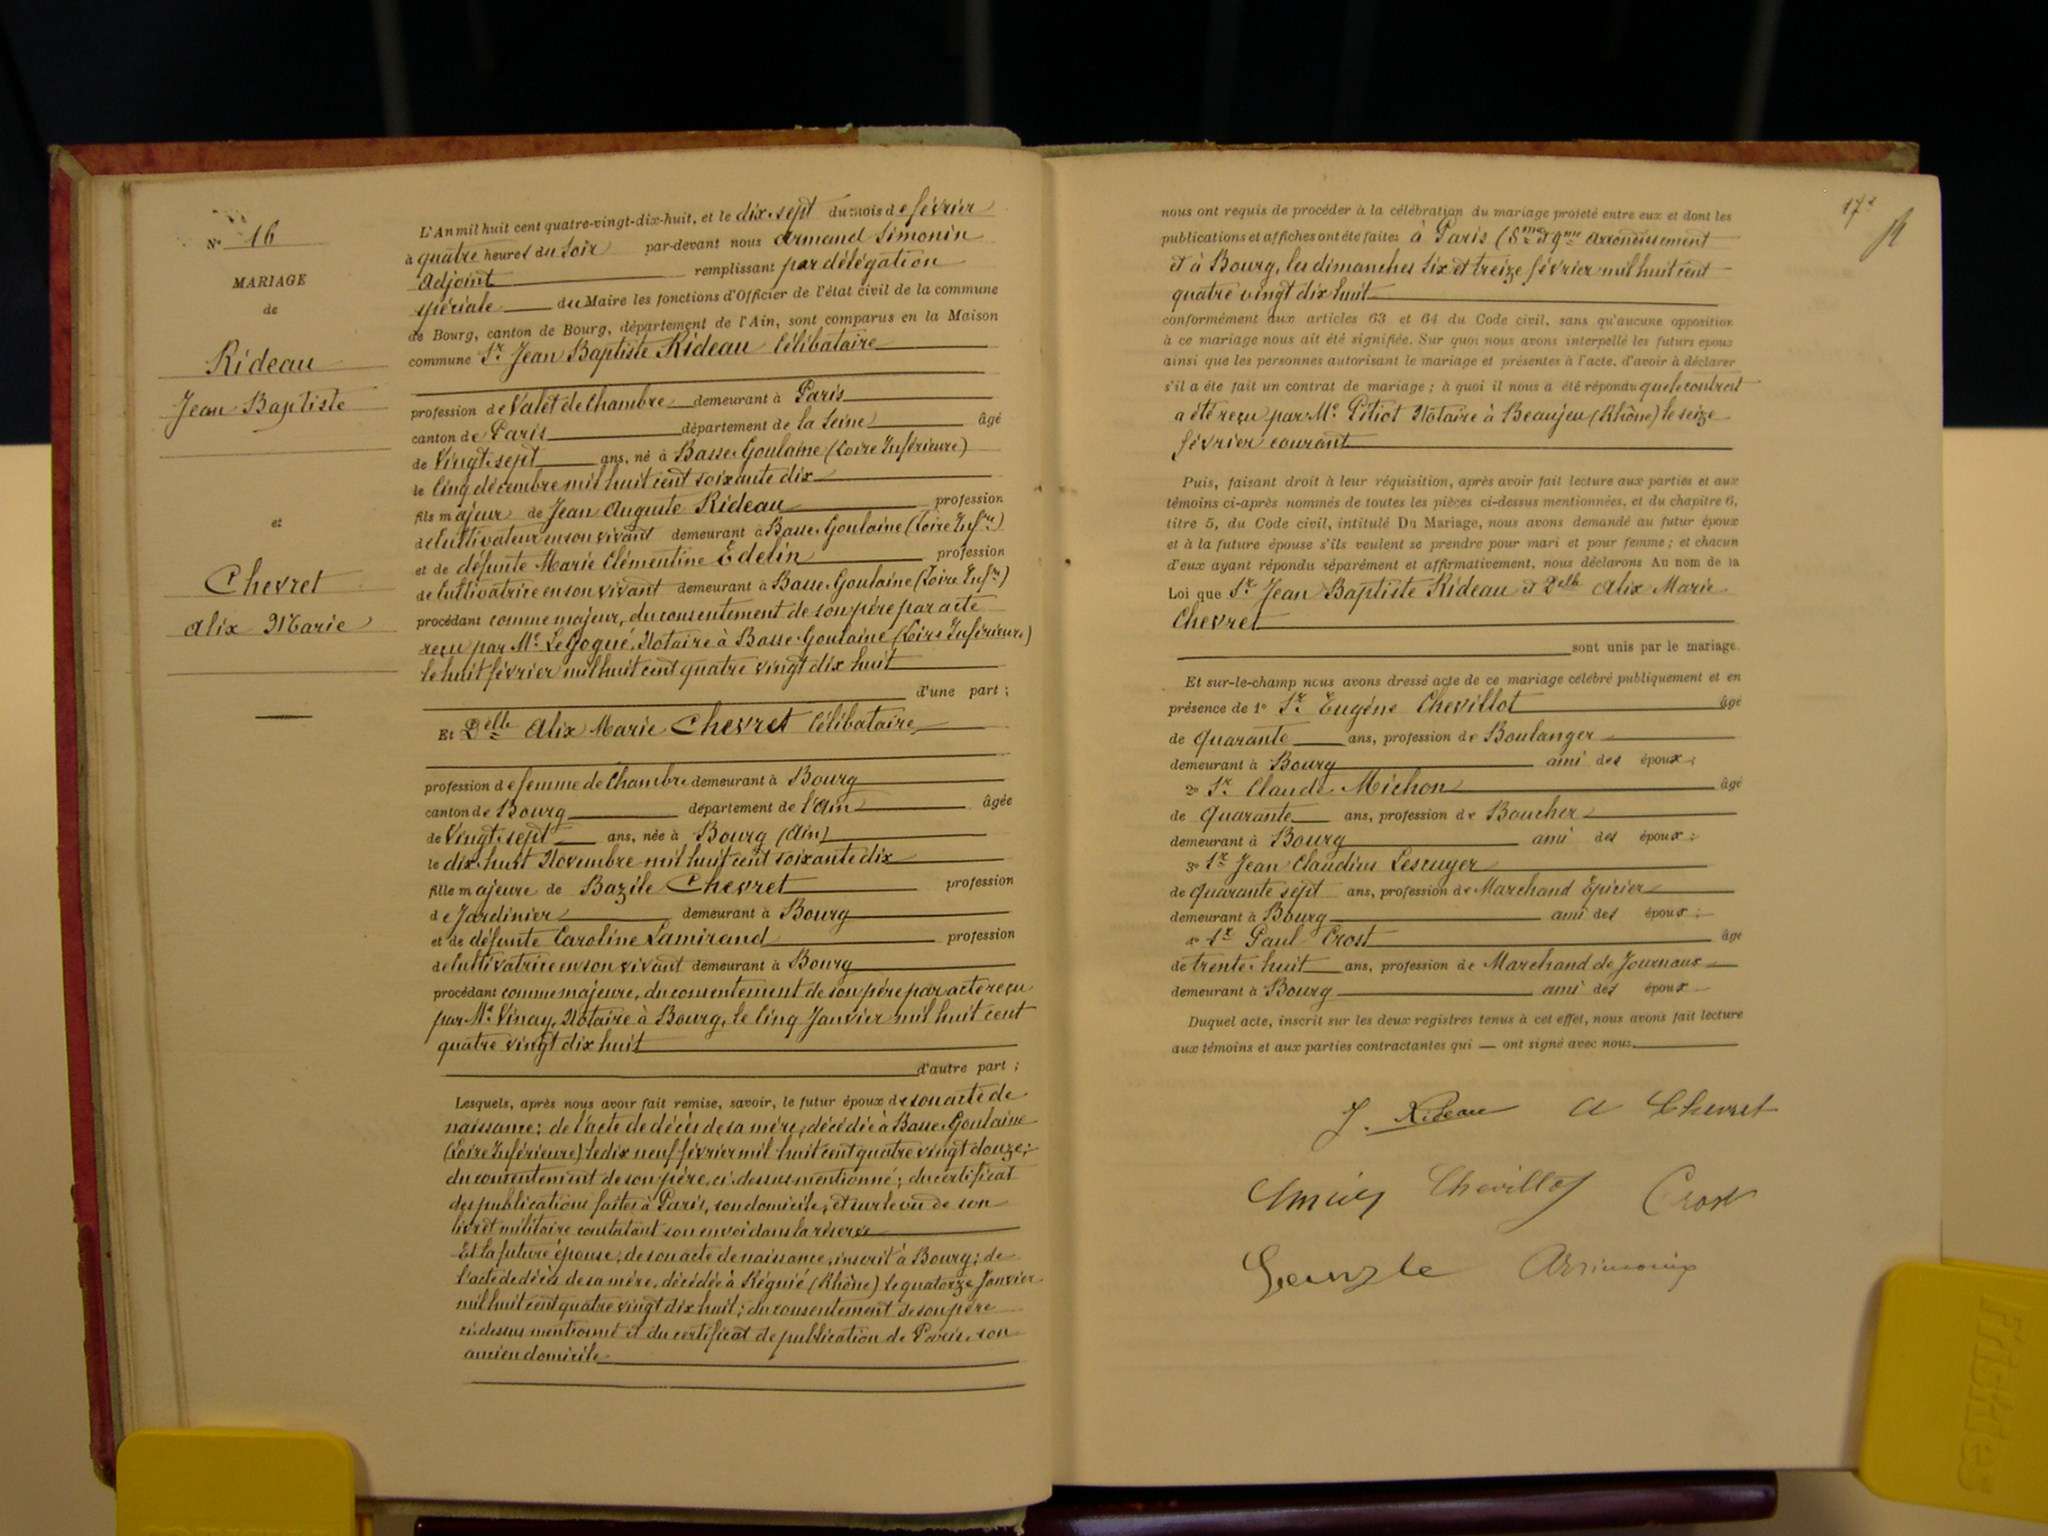 N° 16
MARIAGE
de
Rideau
Jean Baptiste
et
Chevret
Alix Marie
L'An mil huit cent quatre-vingt-dix-huit, et le dix-sept du mois de février
à quatre heures du soir par-devant nous Armand Simonin
Adjoint remplissant par délégation
spéciale du Maire les fonctions d'Officier de l'état civil de la commune
de Bourg, canton de Bourg, département de l'Ain, sont comparus en la Maison
commune Sr Jean Baptiste Rideau Célibataire
profession de Valet de Chambre demeurant à Paris
canton de Paris département de la Seine âgé
de Vingt-sept ans, né à Basse-Goulaine (Loire Inférieure)
le Cinq décembre mil huit cent soixante dix
fils majeur de Jean Auguste Rideau profession
de Cultivateur en son vivant demeurant à Basse-Goulaine (Loire Infre)
et de défunte Marie Clémentine Edelin profession
de Cultivatrice en son vivant demeurant à Basse-Goulaine (Loire Infre)
procédant comme majeur, du consentement de son père par acte
reçu par Me Le Gogué, Notaire à Basse-Goulaine (Loire Inférieure)
le huit février mil huit cent quatre vingt dix huit
d'une part ;
Et Delle Alix Marie Chevret Célibataire
profession de femme de Chambre demeurant à Bourg
canton de Bourg département de l'Ain âgée
de Vingt-sept ans, née à Bourg (Ain)
le dix-huit Novembre mil huit cent soixante dix
fille majeure de Bazile Chevret profession
de Jardinier demeurant à Bourg
et de défunte Caroline Lamirand profession
de Cultivatrice en son vivant demeurant à Bourg
procédant comme majeure, du consentement de son père par acte reçu
par Me Vinay, Notaire à Bourg, le Cinq Janvier mil huit cent
quatre vingt dix huit
d'autre part ;
Lesquels, après nous avoir fait remise, savoir, le futur époux de son acte de
naissance ; de l'acte de décès de sa mère, décédée à Basse-Goulaine
(Loire Inférieure) le dix neuf février mil huit cent quatre vingt douze ;
du consentement de son père, ci-dessus mentionné ; du certificat
des publications faites à Paris, son domicile ; et sur le vu de son
livret militaire constatant son envoi dans la réserve
Et la future épouse ; de son acte de naissance, inscrit à Bourg ; de
l'acte de décès de sa mère, décédée à Régnié (Rhône) le quatorze Janvier
mil huit cent quatre vingt dix huit ; du consentement de son père
ci-dessus mentionné et du certificat de publication de Paris, son
ancien domicile
17
nous ont requis de procéder à la célébration du mariage projeté entre eux et dont les
publications et affiches ont été faites à Paris (8me et 9me Arrondissement
et à Bourg, les dimanches Six et treize février mil huit cent
quatre vingt dix huit
conformément aux articles 63 et 64 du Code civil, sans qu'aucune opposition
à ce mariage nous ait été signifiée. Sur quoi nous avons interpellé les futurs époux
ainsi que les personnes autorisant le mariage et présentes à l'acte, d'avoir à déclarer
s'il a été fait un contrat de mariage ; à quoi il nous a été répondu que le contrat
a été reçu par Me Pitiot Notaire à Beaujeu (Rhône) le seize
février courant
Puis, faisant droit à leur réquisition, après avoir fait lecture aux parties et aux
témoins ci-après nommés de toutes les pièces ci-dessus mentionnées, et du chapitre 6,
titre 5, du Code civil, intitulé Du Mariage, nous avons demandé au futur époux
et à la future épouse s'ils veulent se prendre pour mari et pour femme ; et chacun
d'eux ayant répondu séparément et affirmativement, nous déclarons Au nom de la
Loi que Sr Jean Baptiste Rideau et Delle Alix Marie
Chevret
sont unis par le mariage.
Et sur-le-champ nous avons dressé acte de ce mariage célébré publiquement et en
présence de 1° Sr Eugène Chevillot âgé
de Quarante ans, profession de Boulanger
demeurant à Bourg ami des époux ;
2° Sr Claude Michon âgé
de Quarante ans, profession de Boucher
demeurant à Bourg ami des époux ;
3° Sr Jean Claudius Lescuyer
de Quarante sept ans, profession de Marchand Epicier
demeurant à Bourg ami des époux ;
4° Sr Paul Crost âgé
de trente-huit ans, profession de Marchand de Journaux
demeurant à Bourg ami des époux
Duquel acte, inscrit sur les deux registres tenus à cet effet, nous avons fait lecture
aux témoins et aux parties contractantes qui ont signé avec nous.
J. Rideau A Chevret
Chevillot Crost
Frisktes